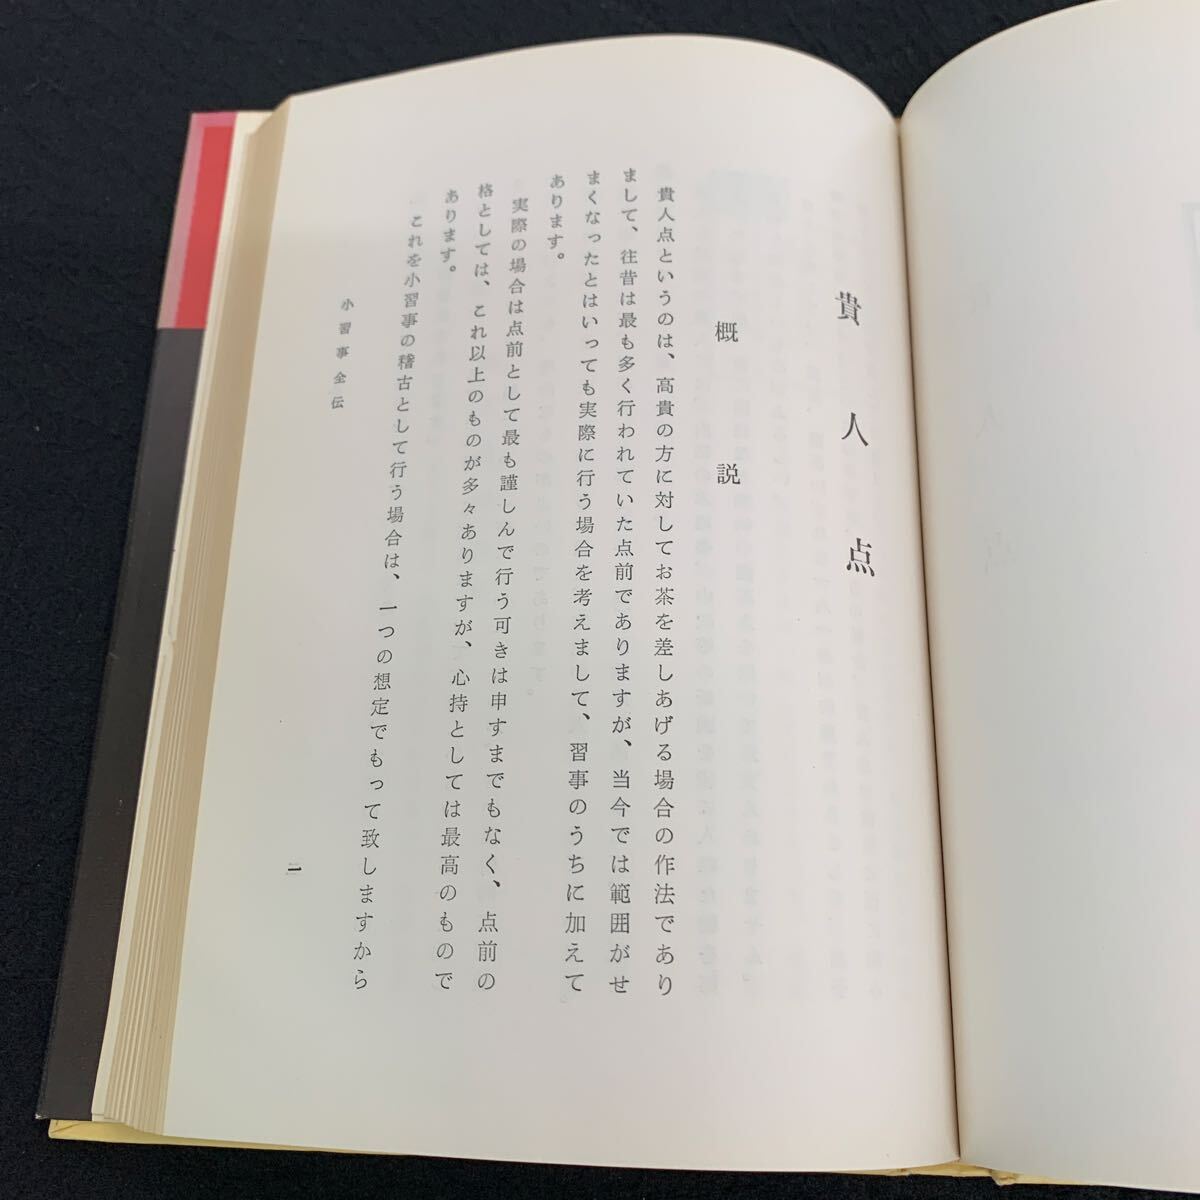 貴人点
概説
貴人点というのは、高貴の方に対してお茶を差しあげる場合の作法であり
まして、往昔は最も多く行われていた点前でありますが、当今では範囲がせ
まくなったとはいっても実際に行う場合を考えまして、習事のうちに加えて
あります。
実際の場合は点前として最も謹しんで行う可きは申すまでもなく、点前の
格としては、これ以上のものが多々ありますが、心持としては最高のもので
あります。
これを小習事の稽古として行う場合は、一つの想定でもって致しますから
小習事全伝